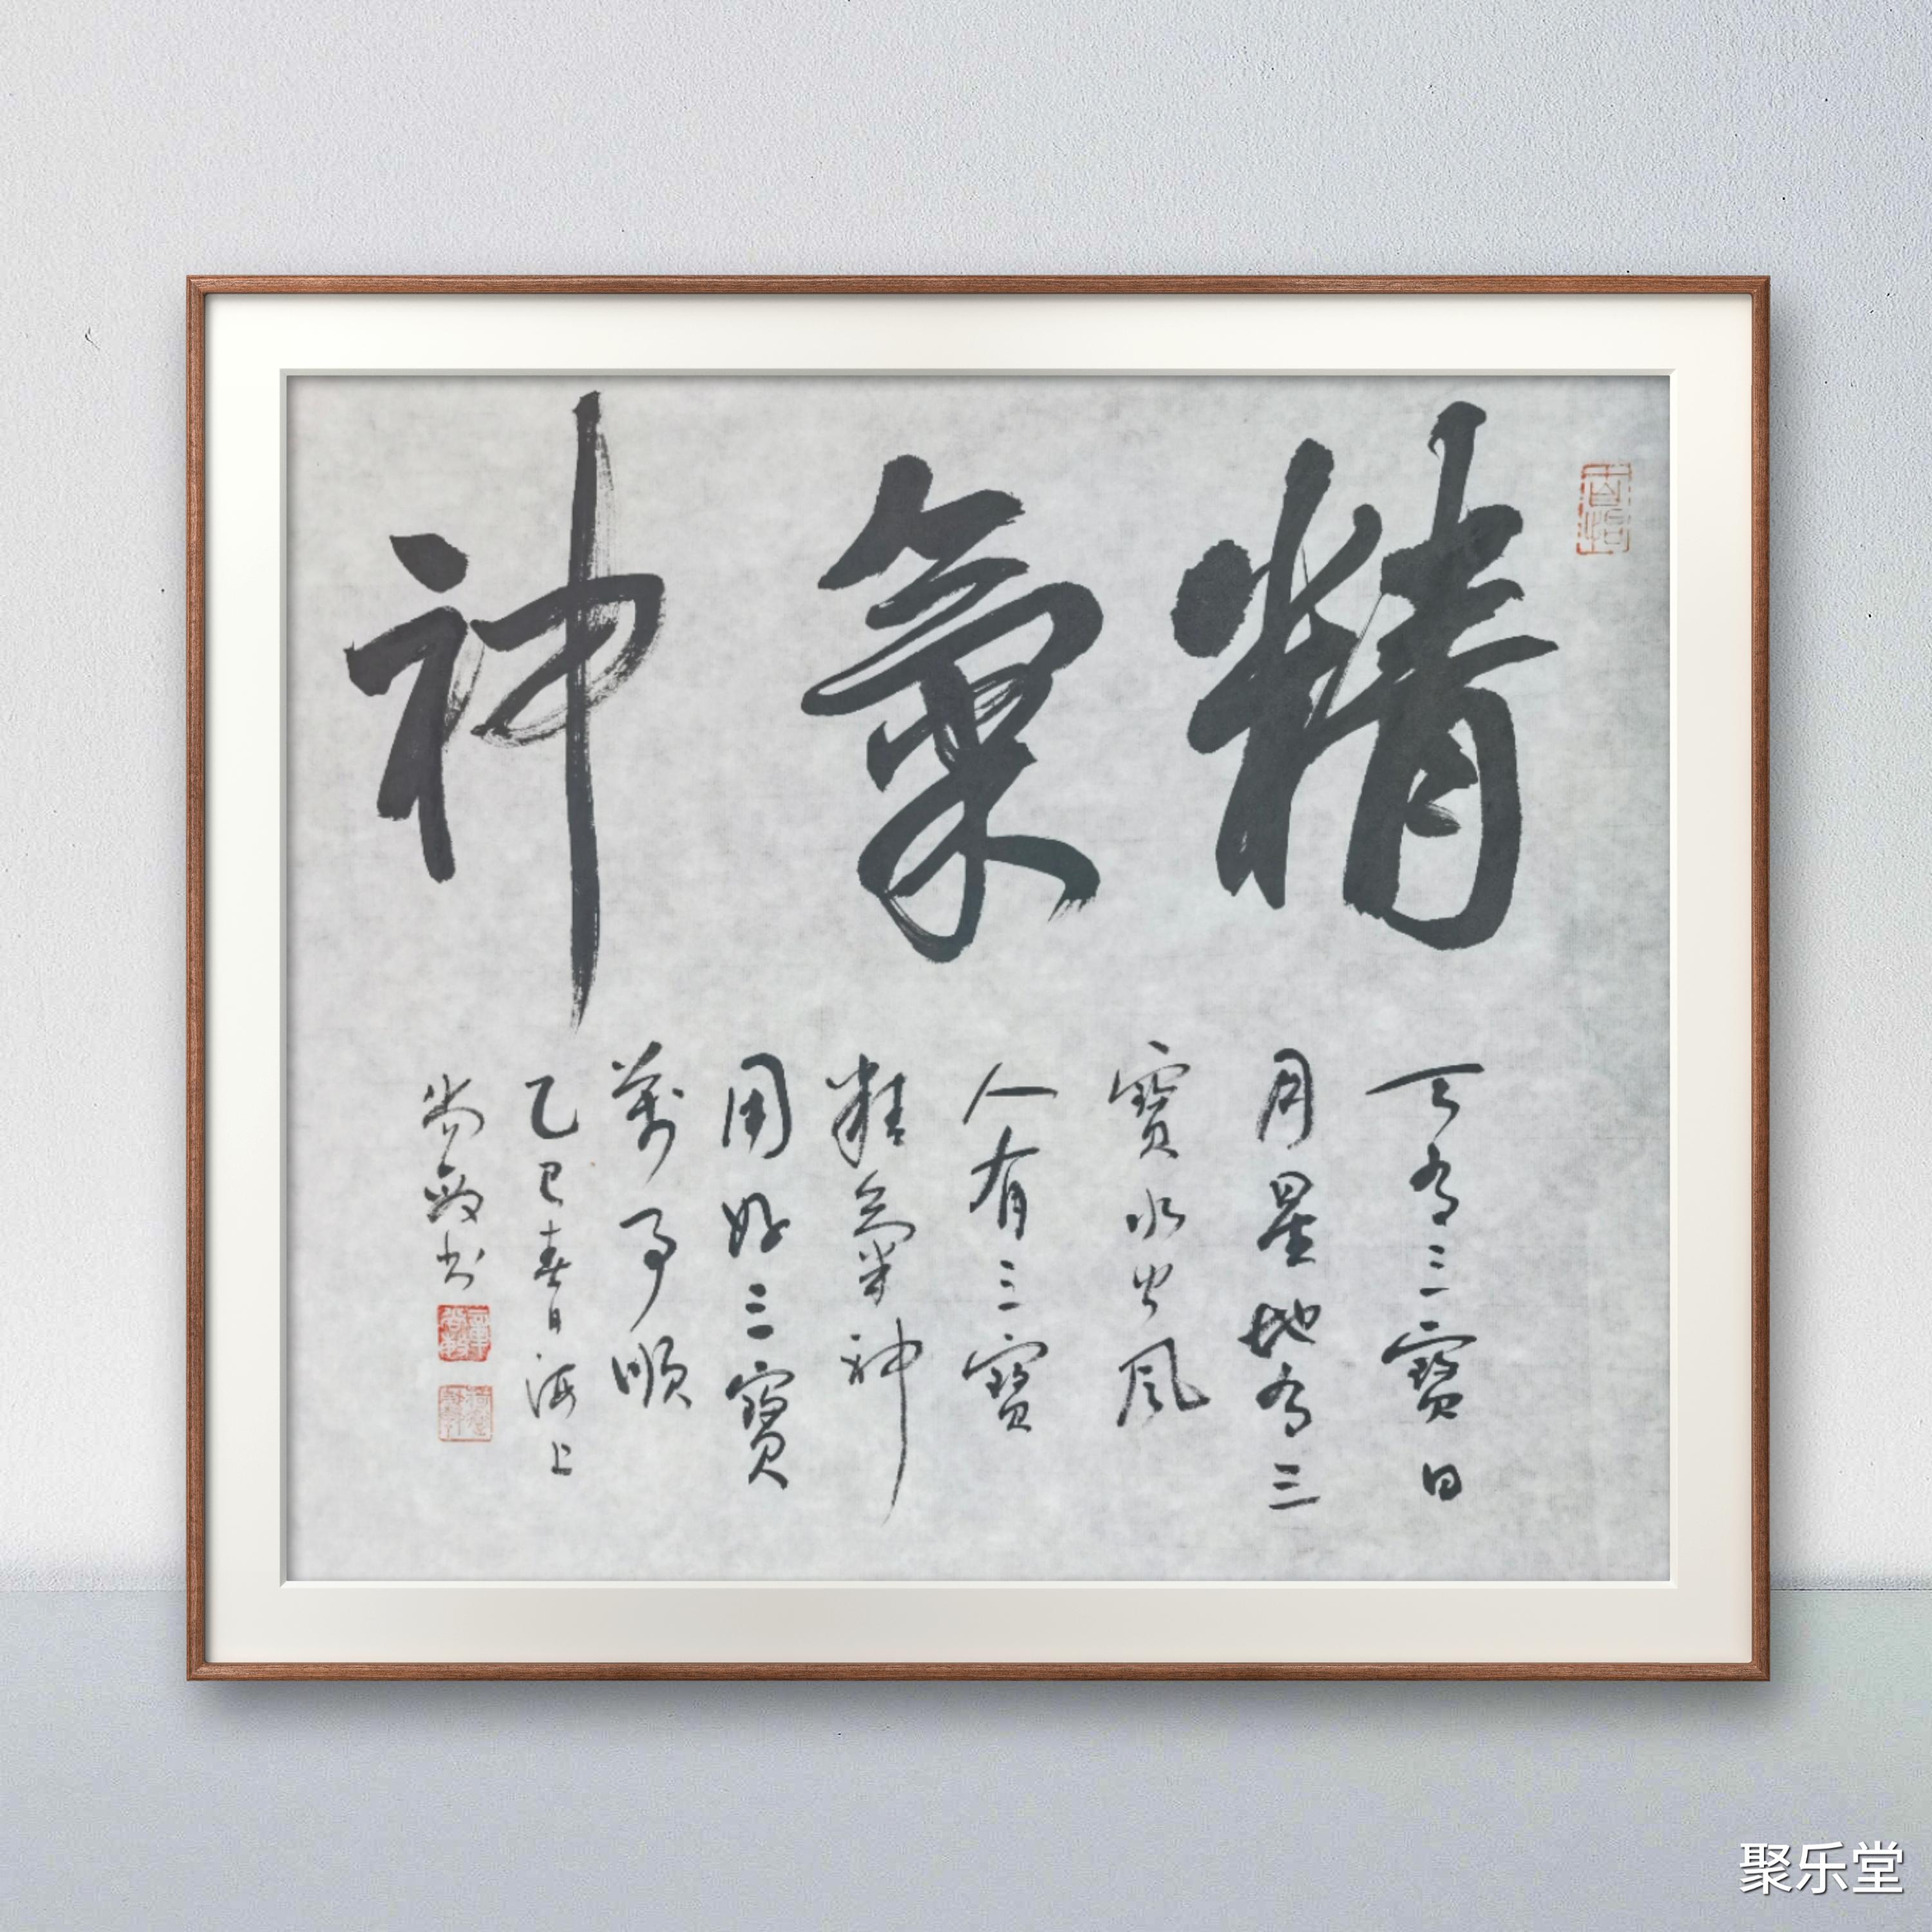 精氣神
天有三寶日
月星地有三
寶水火風
人有三寶
精氣神
用好三寶
萬事順
乙巳春日海上
尚敏书
聚乐堂